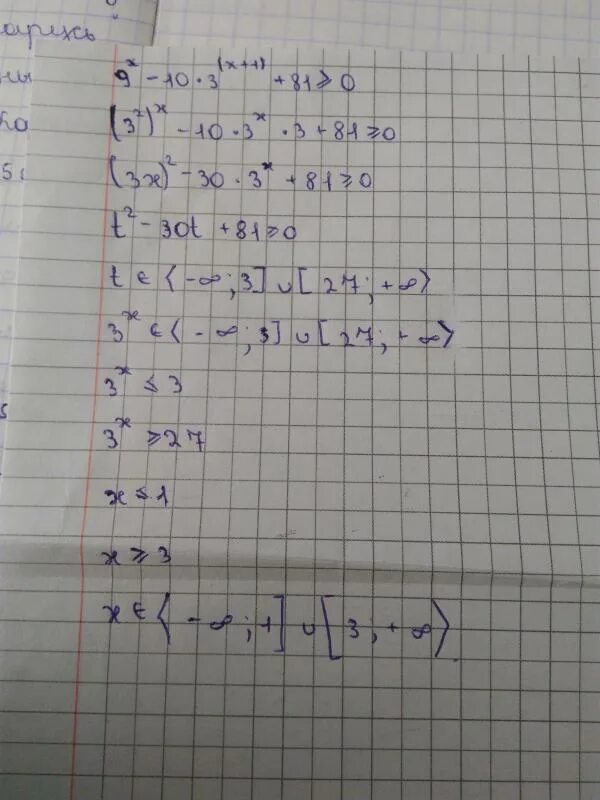 9^x - 10 · 3^(x+1) + 81 ≥ 0
(3^2)^x - 10 · 3^x · 3 + 81 ≥ 0
(3x)^2 - 30 · 3^x + 81 ≥ 0
t^2 - 30t + 81 ≥ 0
t ∈ (-∞; 3] ∪ [27; +∞)
3^x ∈ (-∞; 3] ∪ [27; +∞)
3^x ≤ 3
3^x ≥ 27
x ≤ 1
x ≥ 3
x ∈ (-∞; 1] ∪ [3; +∞)